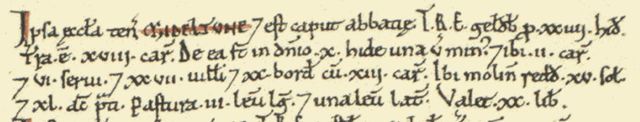 Ipsa æccła ten' MIDELTUNE ⁊ est caput abbatię. T.R.E. geldƀ p xxiiii. hiđ.
Tra .ē. xviii. car̃. De ea st in dñio .x. hide una v̄ min⁹ ⁊ ibi .ii. car̃.
⁊ vi. serui. ⁊ xxvii. uilłi ⁊ xx borđ cū .xiii. car̃. Ibi molin̄ redđ .xv. soł.
⁊ xl. ac̃ p̃ti. Pastura .iii. leū lg̃. ⁊ una leū lat̃. Valet .xx. liƀ.